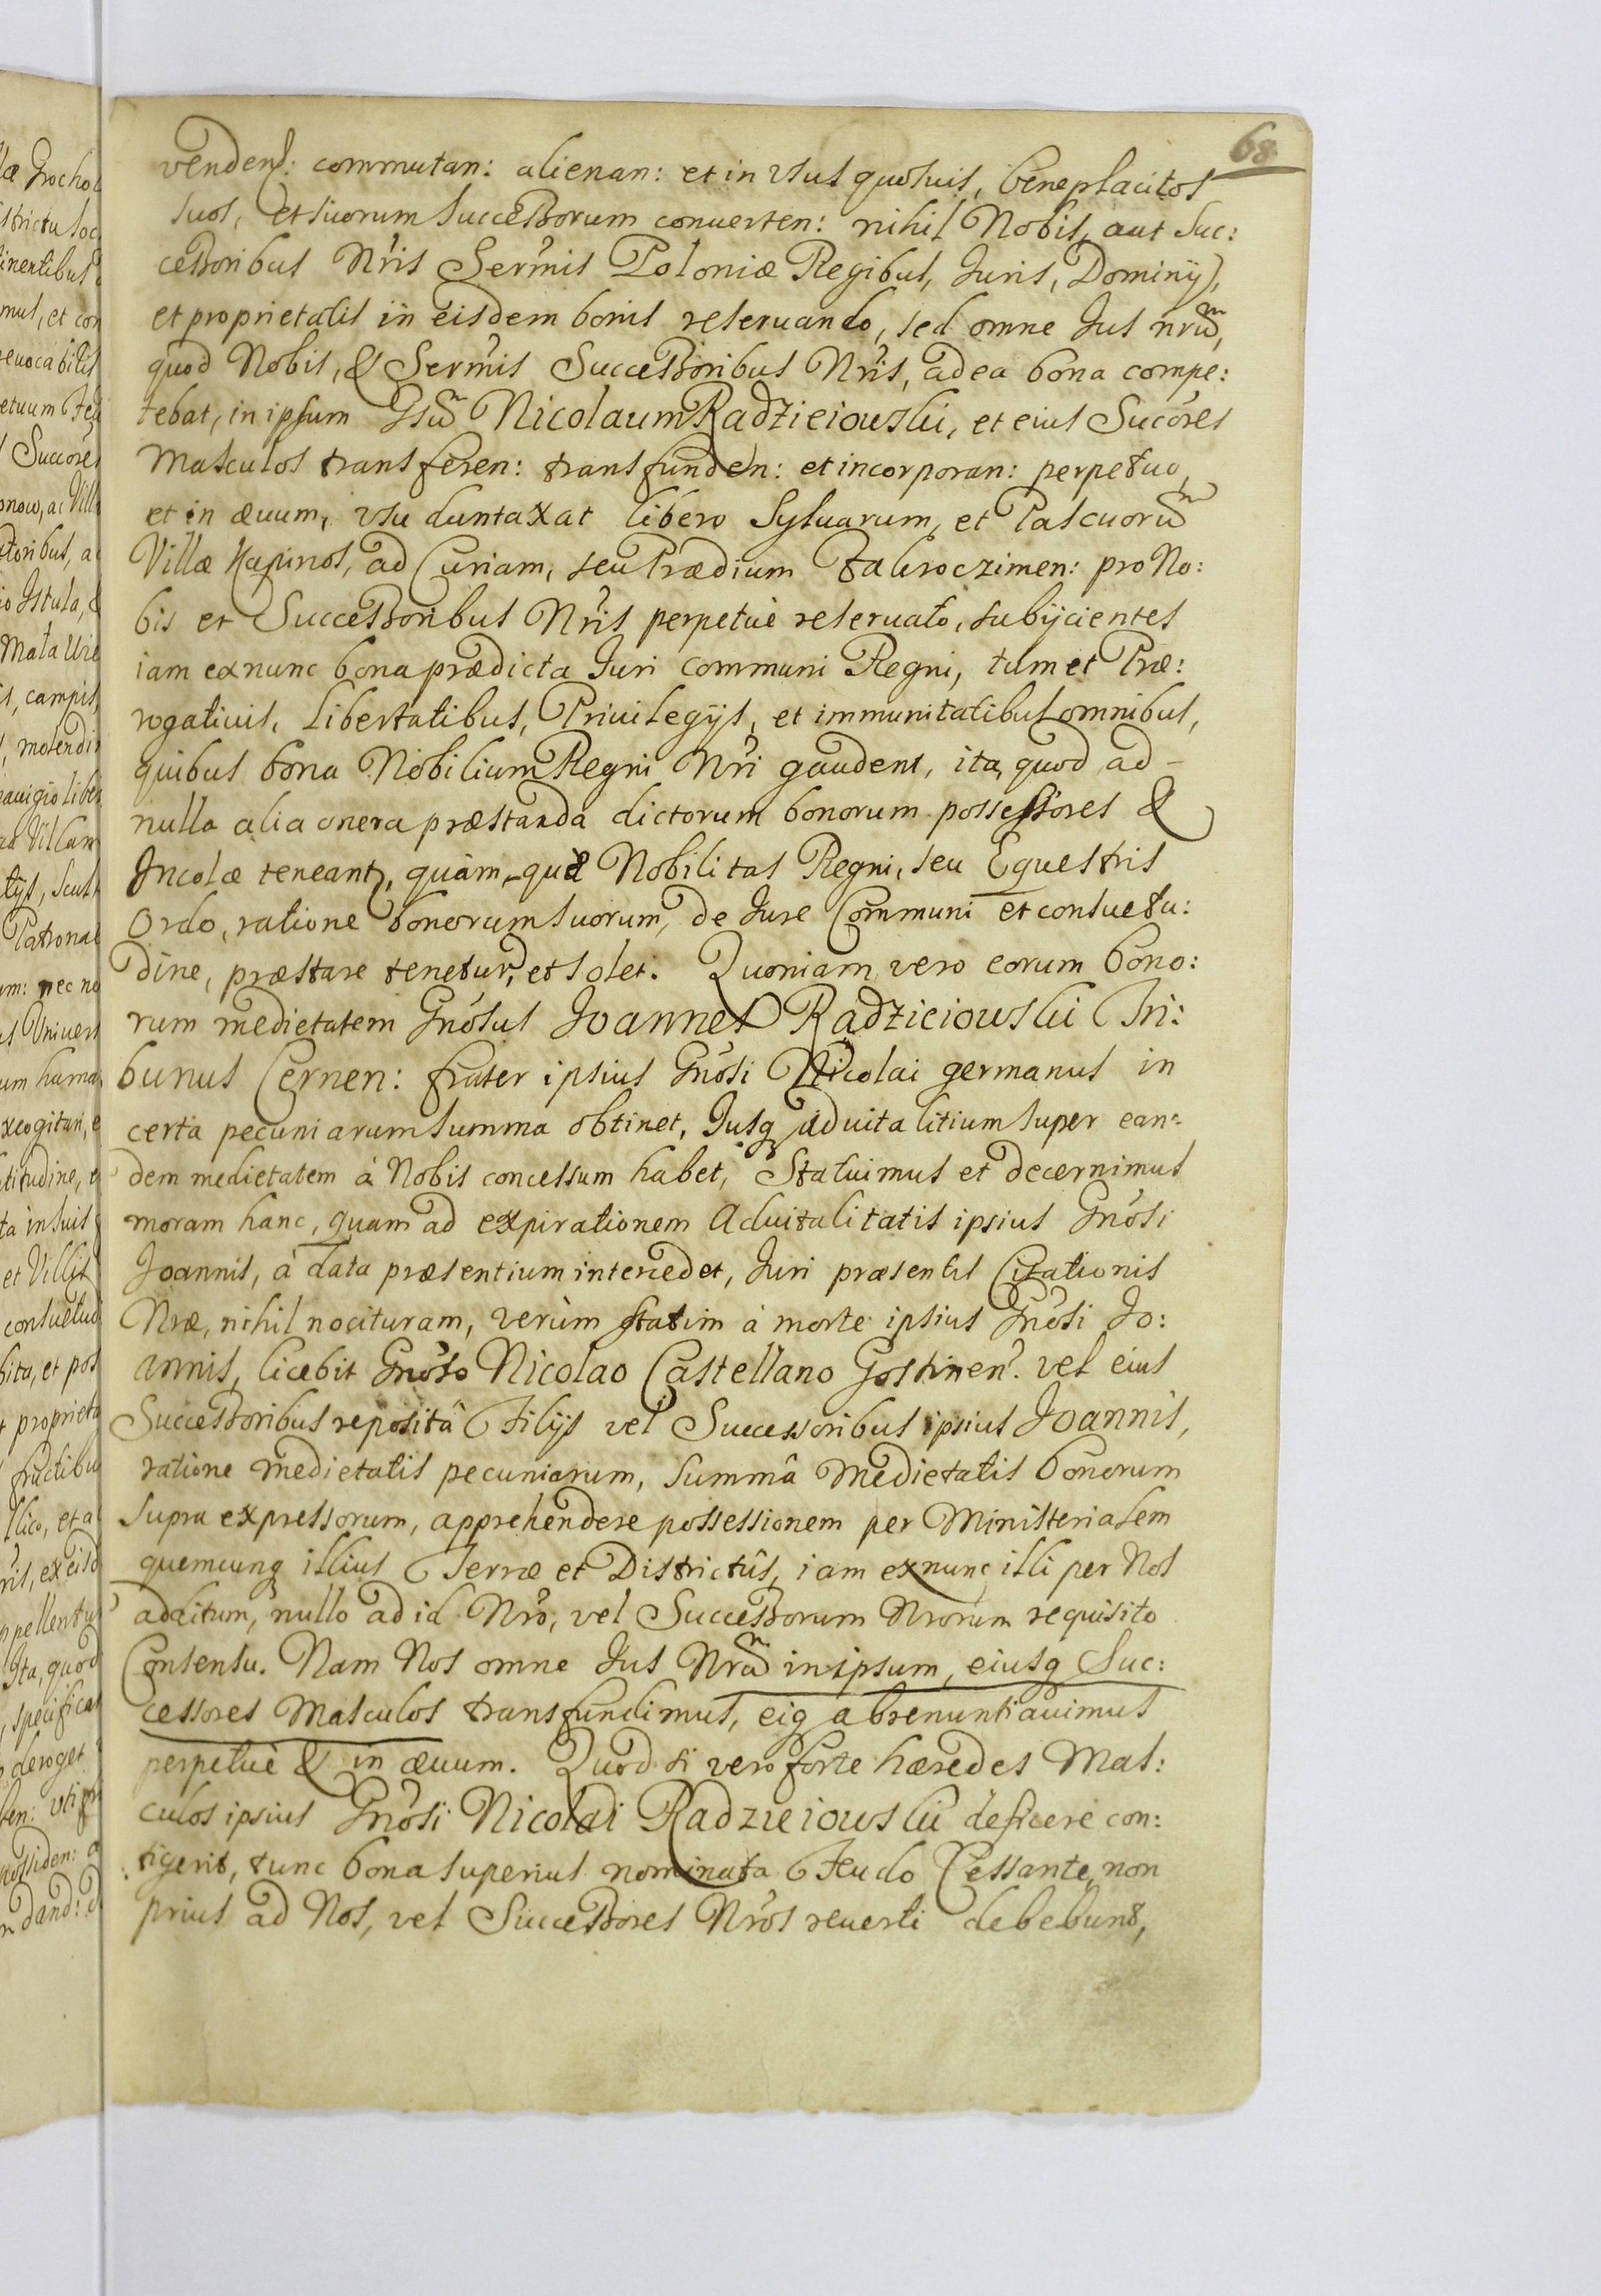 68
venden: commutan: alienan: et in vsus quosuis, beneplacitos
suos, et suorum Successorum conuerten: nihil Nobis, aut Suc:
cessoribus Nris Sermis Poloniæ Regibus, Juris, Dominij,
et proprietatis in eisdem bonis reseruando, sed omne Jus nrum,
quod Nobis, & Sermis Successoribus Nris, ad ea bona compe:
tebat, in ipsum Gsum Nicolaum Radzieiowski, et eius Sucores
Masculos transferen: transfunden: et incorporan: perpetuo,
et in æuum, vsu duntaxat libero Syluarum, et Pascuorum
Villæ Kapinos, ad Curiam, seu Prædium Zakroczimen: pro No:
bis et Successoribus Nris perpetuè reseruato, subijcientes
iam ex nunc bona prædicta Juri communi Regni, tum et Præ:
rogatiuis, Libertatibus, Priuilegijs, et immunitatibus omnibus,
quibus bona Nobilium Regni Nri gaudent, ita, quod ad
nulla alia onera præstanda dictorum bonorum possessores &
Incolæ teneantr, quàm, quæ Nobilitas Regni, seu Equestris
Ordo, ratione bonorum suorum, de Jure Communi et consuetu:
dine, præstare tenetur, et solet. Quoniam vero eorum bono:
rum medietatem Gnosus Joannes Radzieiowski Tri:
bunus Cernen: frater ipsius Gnosi Nicolai germanus in
certa pecuniarum summa obtinet, Jusq aduitalitium super ean:
dem medietatem à Nobis concessum habet, Statuimus et decernimus
moram hanc, quam ad expirationem Aduitalitatis ipsius Gnosi
Joannis, à data præsentium intercedet, Juri præsentis Citationis
Nræ, nihil nocituram, verùm statim à morte ipsius Gnosi Jo:
annis, licebit Gnoso Nicolao Castellano Gostinen. vel eius
Successoribus repositâ Filijs vel Successoribus ipsius Joannis,
ratione medietatis pecuniarum, summâ medietatis bonorum
supra expressorum, apprehendere possessionem per Ministerialem
quemcunq illius Terræ et Districtûs, iam ex nunc illi per Nos
additum, nullo ad id Nro, vel Successorum Nrorum requisito
Consensu. Nam Nos omne Jus Nrum in ipsum, eiusq Suc:
cessores Masculos transfundimus, eiq abrenuntiauimus
perpetuè & in æuum. Quod si vero forte hæredes Mas:
culos ipsius Gnosi Nicolai Radzieiowski deficere con:
tigerit, tunc bona superius nominata Feudo Cessante, non
prius ad Nos, vel Successores Nros reuerti debebunt,